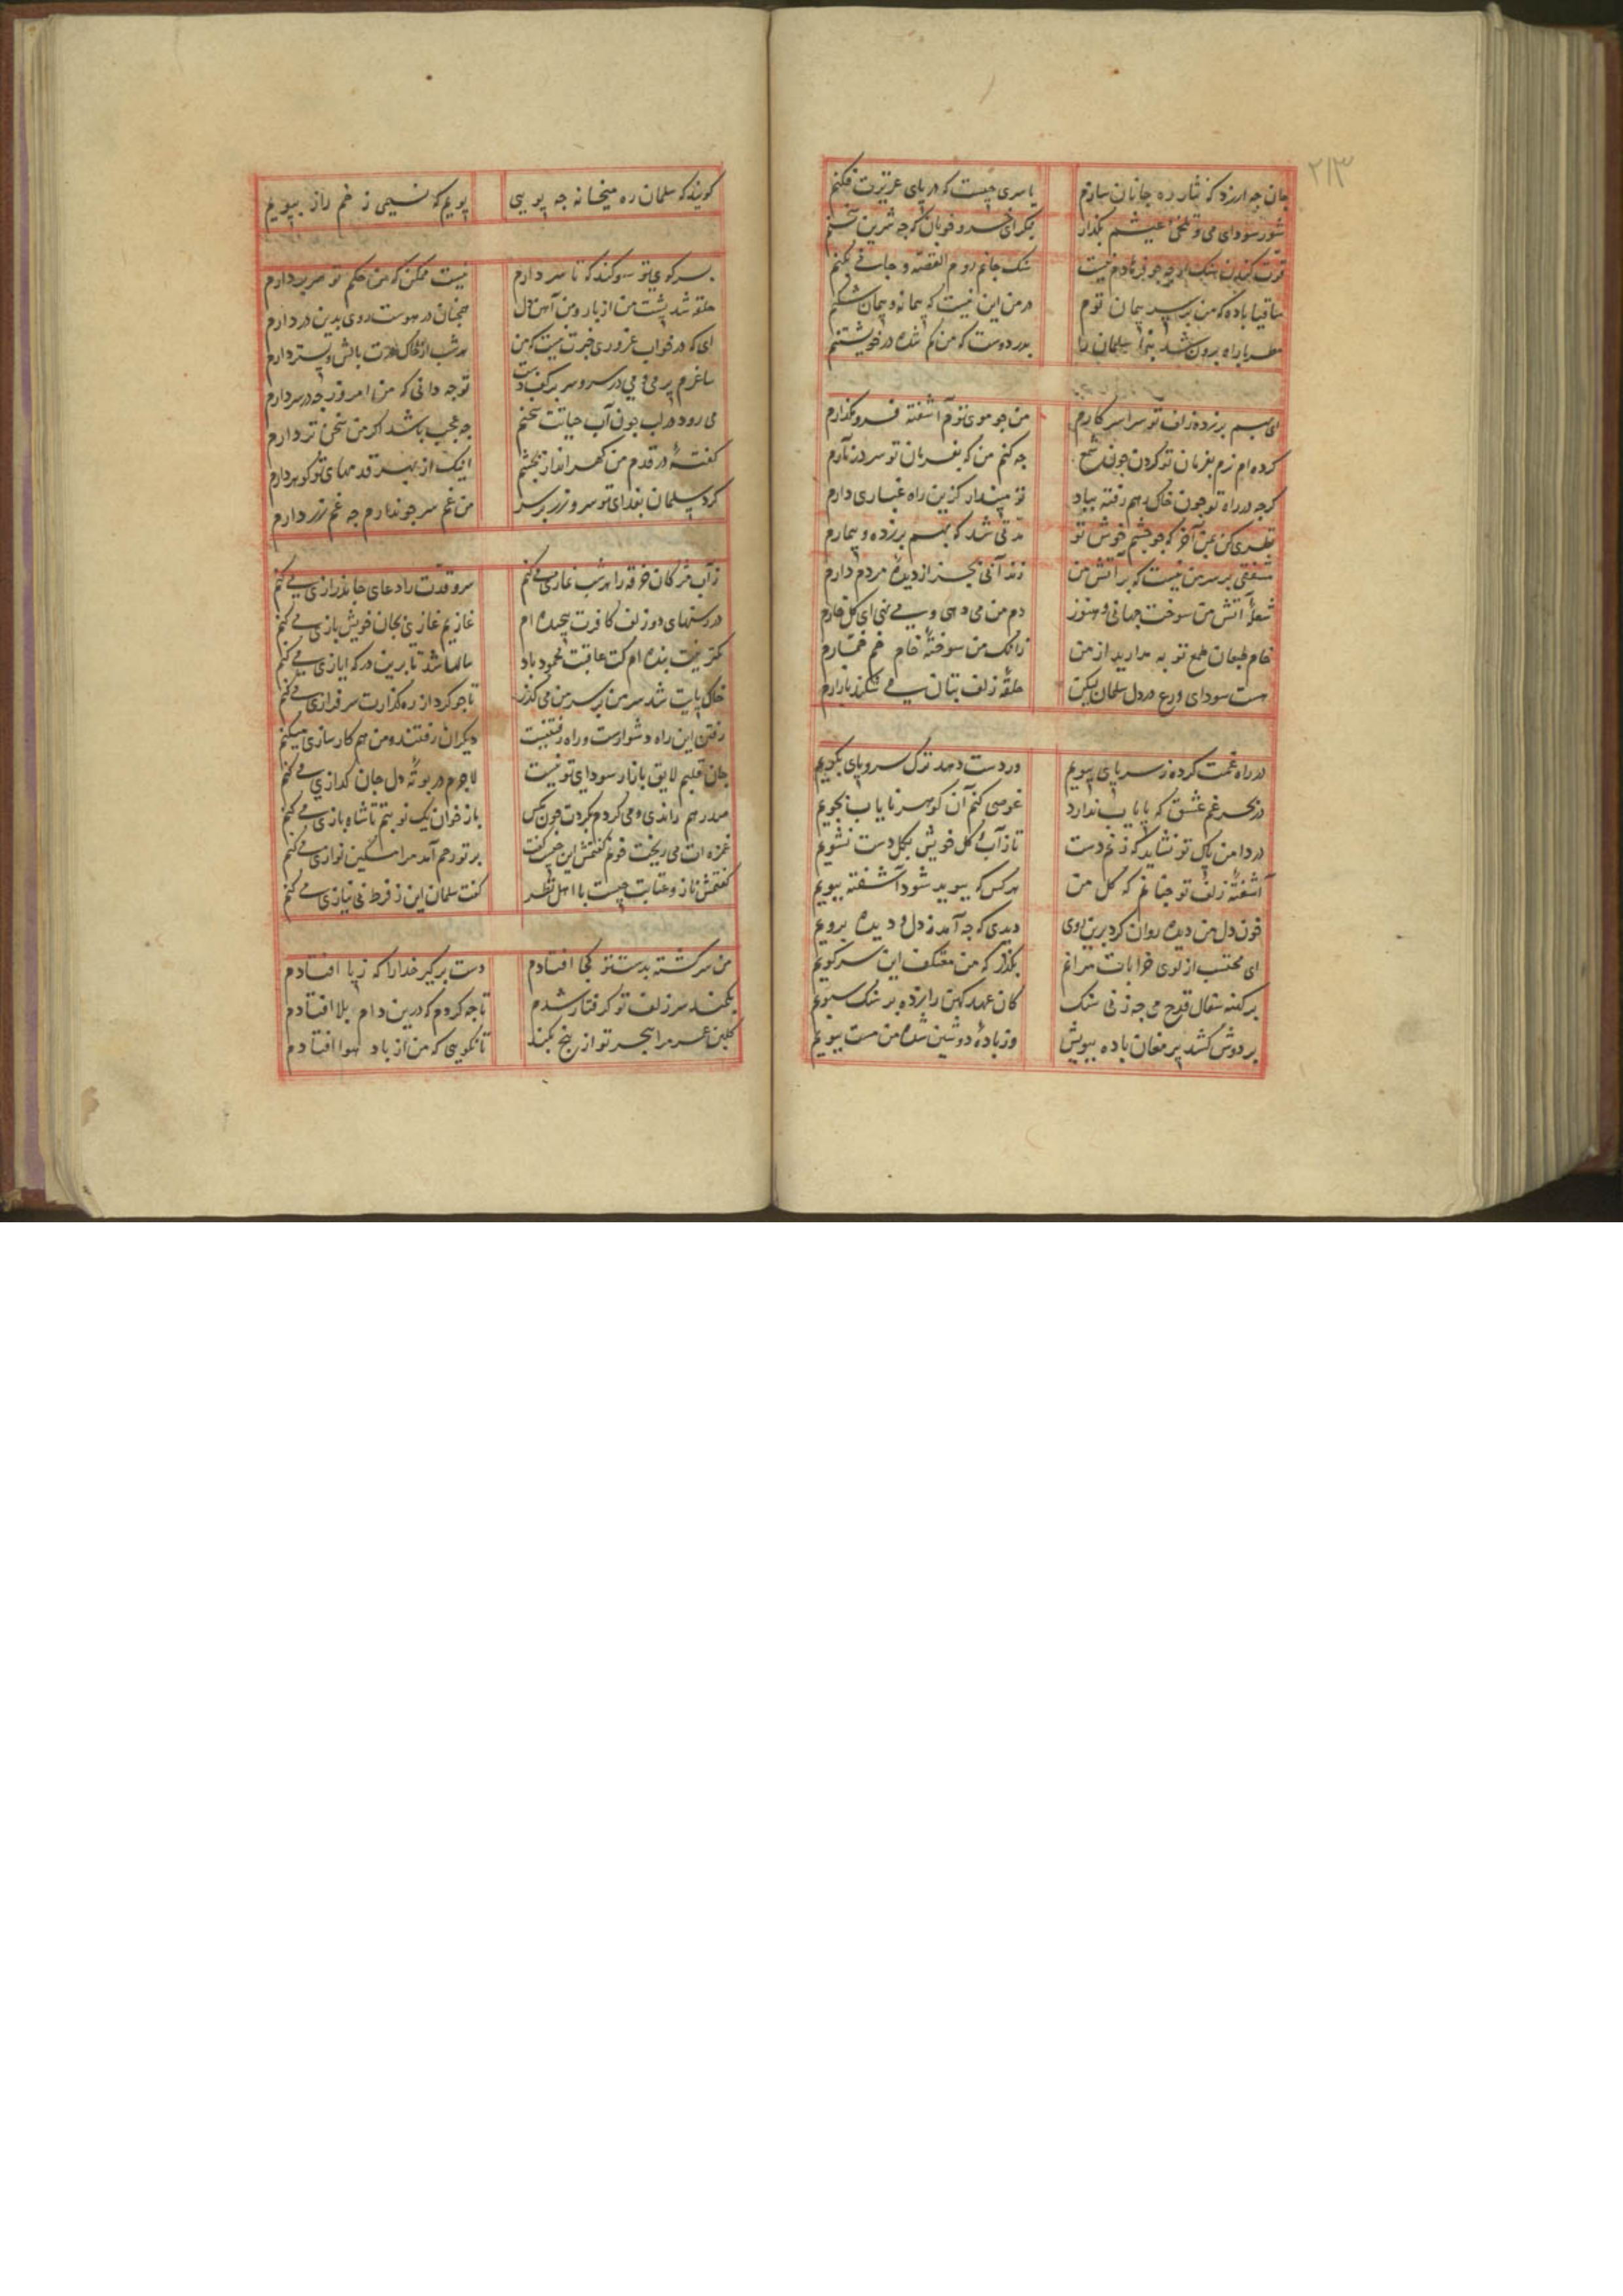 ۲۱۳
جان چه ارزد که نثار ره جانان سازم یا سری چیست که در پای عزیزت فکنم
شور سودای می و تلخی عیشم بگذار خسرو خوبان که چه شیرین سخنم
قوت کندن سنگ چو فرهادم نیست سنگ جانم روم القصه و جانی بکنم
ساقیا باده که من بر سر پیمان توم در من این نیست که پیمانه و پیمان شکنم
مطربا راه برون شد بنما سلمان را بدر دوست که من گم شده در خویشتنم
ای بهم بر زده زلف تو سراسر کارم من چو موی توم آشفته فرو مگذارم
کرده ام نرم بفرمان تو گردن چون شمع چه کنم من که بفرمان تو سر در نارم
گرچه در راه تو چون خاک رهم رفته بباد تو مپندار کزین راه غباری دارم
نظری کن بمن آخر که چو چشم خوش تو مدتی شد که بهم بر زده و بیمارم
مشفقی بر سر من نیست که بر آتش من زند آبی بجز از دیده مردم دارم
شعله آتش من سوخت جهانی و هنوز دم من می دهی و می نهی ای گل خارم
خام طبعان طمع توبه مدارید از من زانک من سوخته خام خم خمارم
هست سودای ورع در دل سلمان لیکن حلقه زلف بتان می نگذارد بارم
در راه غمت کرده ز سر پای بپویم ور دست دهد ترک سر و پای بگویم
در بحر غم عشق که پایاب ندارد غوصی کنم آن گوهر نایاب بجویم
در دامن پاک تو نشاید که زنم دست تا ز آب گل خویش بکل دست نشویم
آشفته زلف تو چنانم که گل من هر کس که ببوید شود آشفته ببویم
خون دل من دیده روان کرد برین روی دیدی که چه آمد ز دل و دیده برویم
ای محتسب از کوی خرابات مرانم بگذر که من معتکف این سر کویم
بر کهنه سفال قدح می چه زنی سنگ کان عهد کهن را بزده بر سنگ سبویم
بر دوش کشد پیر مغان باده ببویش وز باده دوشین شده من مست ببویم
گویند که سلمان ره میخانه چه پویی پویم که نسیمی ز خم راز ببویم
بسر کوی تو سوگند که تا سر دارم نیست ممکن که من حکم تو سر بر دارم
حلقه شد پشت من از بار و من آهن دل همچنان در هوست روی بدین در دارم
ای که در خواب غروری خبرت نیست که من هر شب از خاک درت بالش و بستر دارم
ساغرم پر می و می در سر و سر بر کف دست تو چه دانی که من امروز چه در سر دارم
می رود در لب چون آب حیاتت سخنم چه عجب باشد اگر من سخن تر دارم
گفته در قدم من گهر انداز بچشم اینک از بهر قدمهای تو گوهر دارم
کرد سلمان بفدای تو سر و زر بر سر من غم سر چو ندارم چه غم زر دارم
ز آب مژگان خرقه را هر شب نمازی می کنم سرو قدت را دعای جان درازی می کنم
در رسنهای دو زلف کافرت پیچیده ام غازیم غازی بجان خویش بازی می کنم
کمترینت بنده ام کت عاقبت محمود باد سالها شد تا برین درگه ایازی می کنم
خاک پایت شد سر من بر سر من می گذر تا چو گرد از ره گذارت سرفرازی می کنم
رفتن این راه دشوارست و راه رفتنیست دیگران رفتند و من هم کار سازی میکنم
جان قلبم لایق بازار سودای تو نیست لاجرم در بوته دل جان گدازی می کنم
صدرهم راندی و می گردم بگردت چون مگس باز خوان یک نوبتم تا شاه بازی می کنم
غمزه ات می ریخت خونم گفتمش این چیست گفت بر تو رحم آمد مرا مسکین نوازی می کنم
گفتمش ناز و عتابت چیست با اهل نظر گفت سلمان این ز فرط بی نیازی می کنم
من سرگشته بدست تو کجا افتادم دست بر گیر خدا را که ز پا افتادم
بکمند سر زلف تو گرفتار شدم تا چه کردم که درین دام بلا افتادم
گلبن عمر مرا هجر تو از بیخ بکند تا نگویی که من از باد هوا افتادم